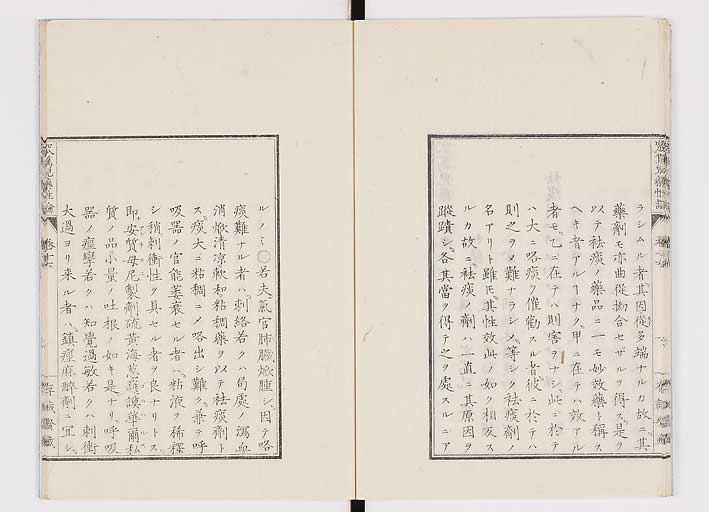 ラシムル者其因從多端ナルカ故ニ其
藥劑モ亦曲從拗合セザルヲ得ス是ヲ
以テ袪痰ノ藥品ニ一モ妙效藥ト稱ス
ヘキ者アルヿナク甲ニ在テハ效アル
者モ乙ニ在テハ則害ヲナシ此ニ於テ
ハ大ニ咯痰ヲ催勸スル者彼ニ於テハ
則之ヲメ難ナラシメ等シク袪痰劑ノ
名アリト雖モ其性效此ノ如ク相反ス
ルカ故ニ袪痰ノ劑ハ一直ニ其原因ヲ
蹤蹟シ各其當ヲ得テ之ヲ處スルニア
ルノミ○若夫氣官肺臟焮腫シ因テ咯
痰難ナル者ハ刺絡若クハ局處ノ瀉血
消焮清凉軟和粘稠藥ヲ以テ袪痰劑ト
ス痰大ニ粘稠ニメ咯出シ難ク兼テ呼
吸器ノ官能萎衰セル者ハ粘液ヲ稀釋
シ稍刺衝性ヲ具セル者ヲ良ナリトス
即安質母尼製劑硫黄海葱謨華爾私
質ノ品小量ノ吐根ノ如キ是ナリ呼吸
器ノ痙攣若クハ知覺過敏若クハ刺衝
大過ヨリ來ル者ハ鎮痙麻醉劑ニ冝シ